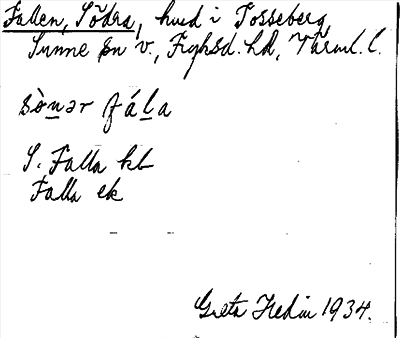 Fallen, Södra, husd i Tosseberg,
Sunne sn v., Fryksd. hd, Värml. l.
sò̀nər fál̠a
S. Falla kb
Falla ek
Greta Hedin 1934.